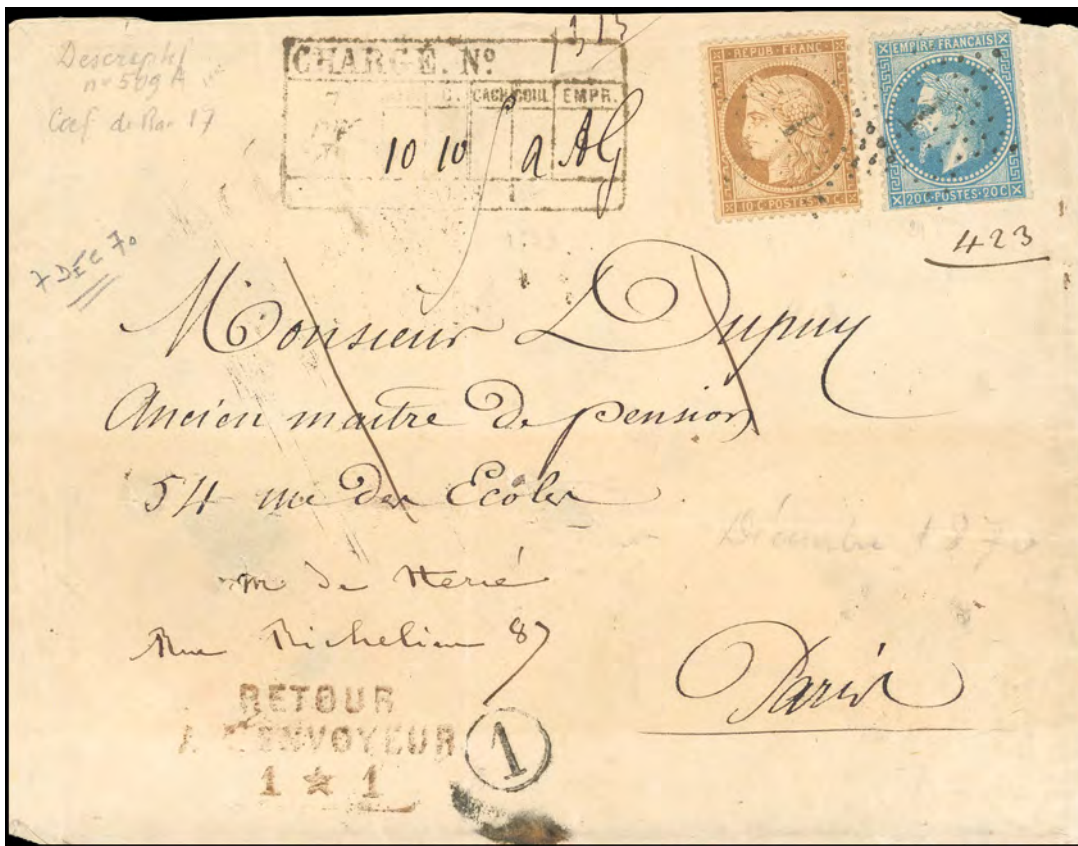 Descrept
n° 589 A
Coef de Rar 17
CHARGÉ. N°
CACH COUL EMPR.
10 10 a
REPUB. FRANC.
10 C. POSTES 10 C
EMPIRE FRANÇAIS
20 C. POSTES 20 C.
423
7 DÉC 70
Monsieur L Dupuy
Ancien maitre de pension
54 rue des Ecoles
Décembre 1870
m de
Rue Richelieu 87
Paris
RETOUR
A L'ENVOYEUR
1 ★ 1
1